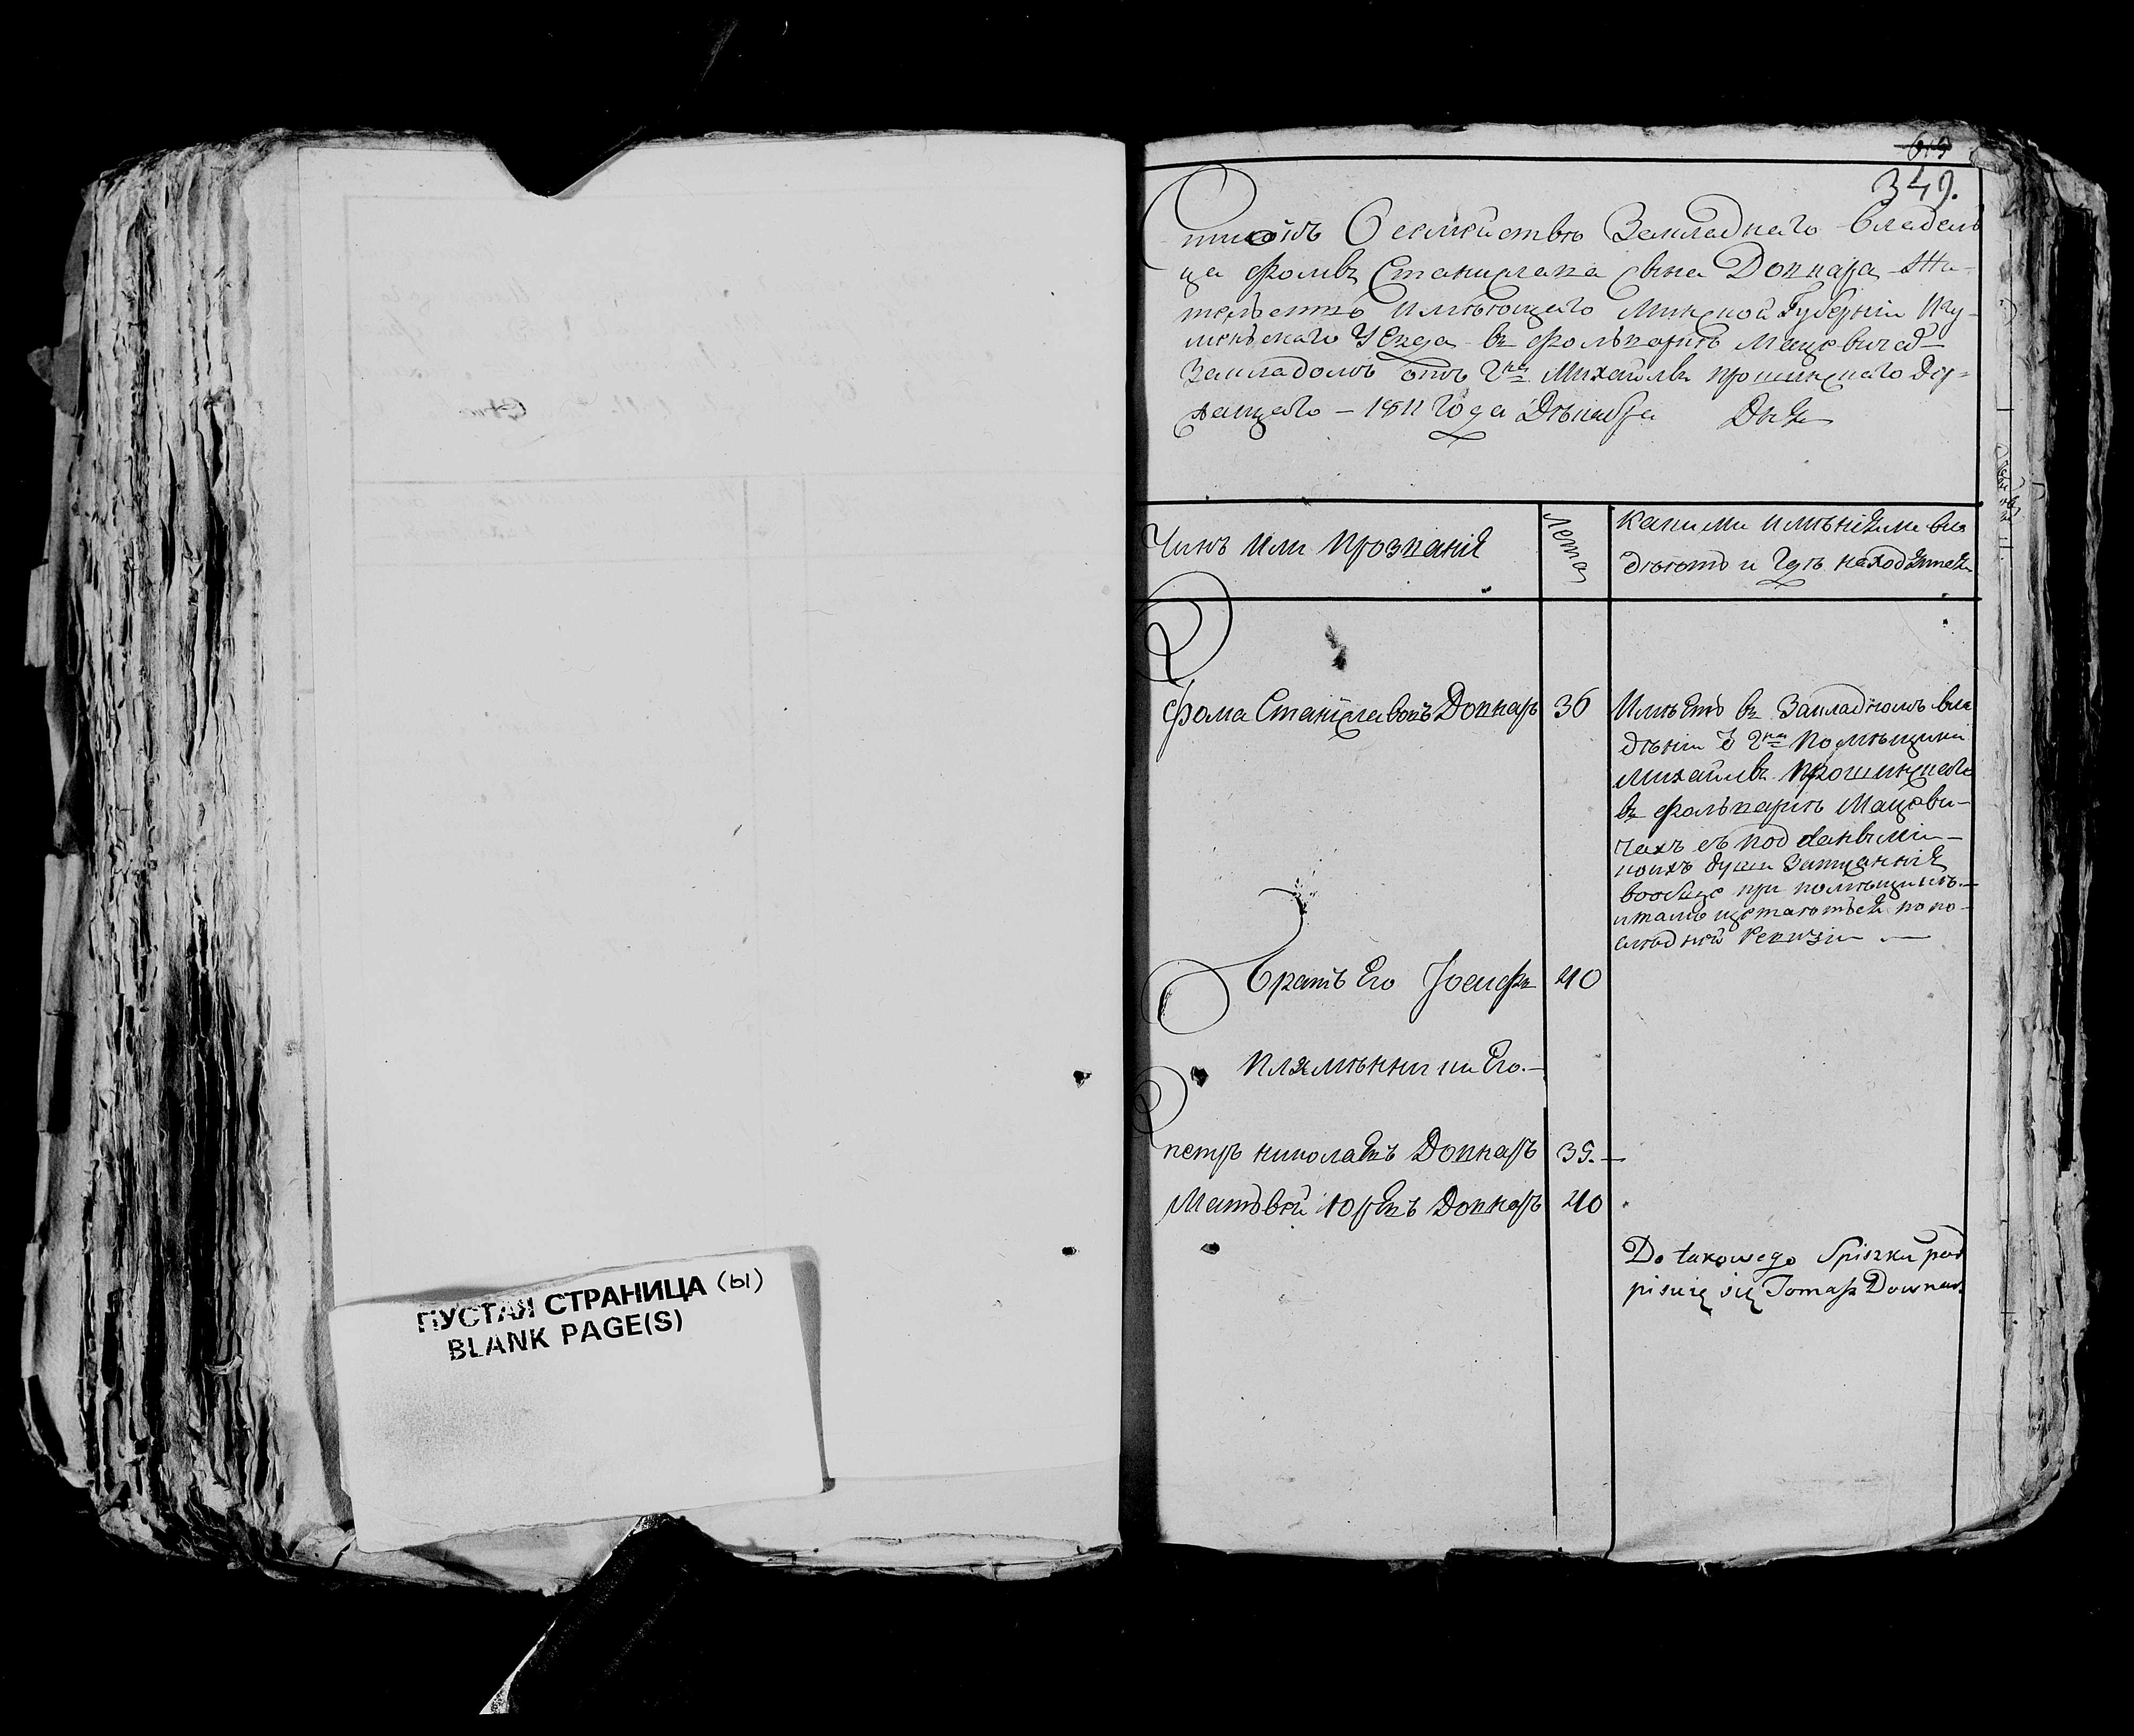 ПУСТАЯ СТРАНИЦА (ы)
BLANK PAGE(S)
615
349.
Списокъ О семействе Закладнаго владель
ца Фомы Станислава сына Довнара Жи-
тельство имеющаго Минской Губерніи Игу-
менскаго Уезда въ фольварке Мацевичахъ
Закладомъ отъ Гна Михайлы Прошинскаго Дер-
жащаго – 1811 Года Декабря Дня
Чинъ или Прозваніе
Лета
какими именіями вла
деютъ и где находятся
Фома Станиславовъ Довнаръ 36
Имеетъ въ Закладномъ вла
деніи Гна Помещика
Михайлы Прошинскаго
въ фольварке Мацеви-
чахъ
вообще при помещике
и тамъ щетаются по по-
следней Ревизіи —
Братъ Его Іосифъ 40
Племянники Его. —
Петръ Николаевъ Довнаръ 35. —
Матвей Юрьевъ Довнаръ 40
Do takowego Spiszku pod
pisuię się Tomasz Downar